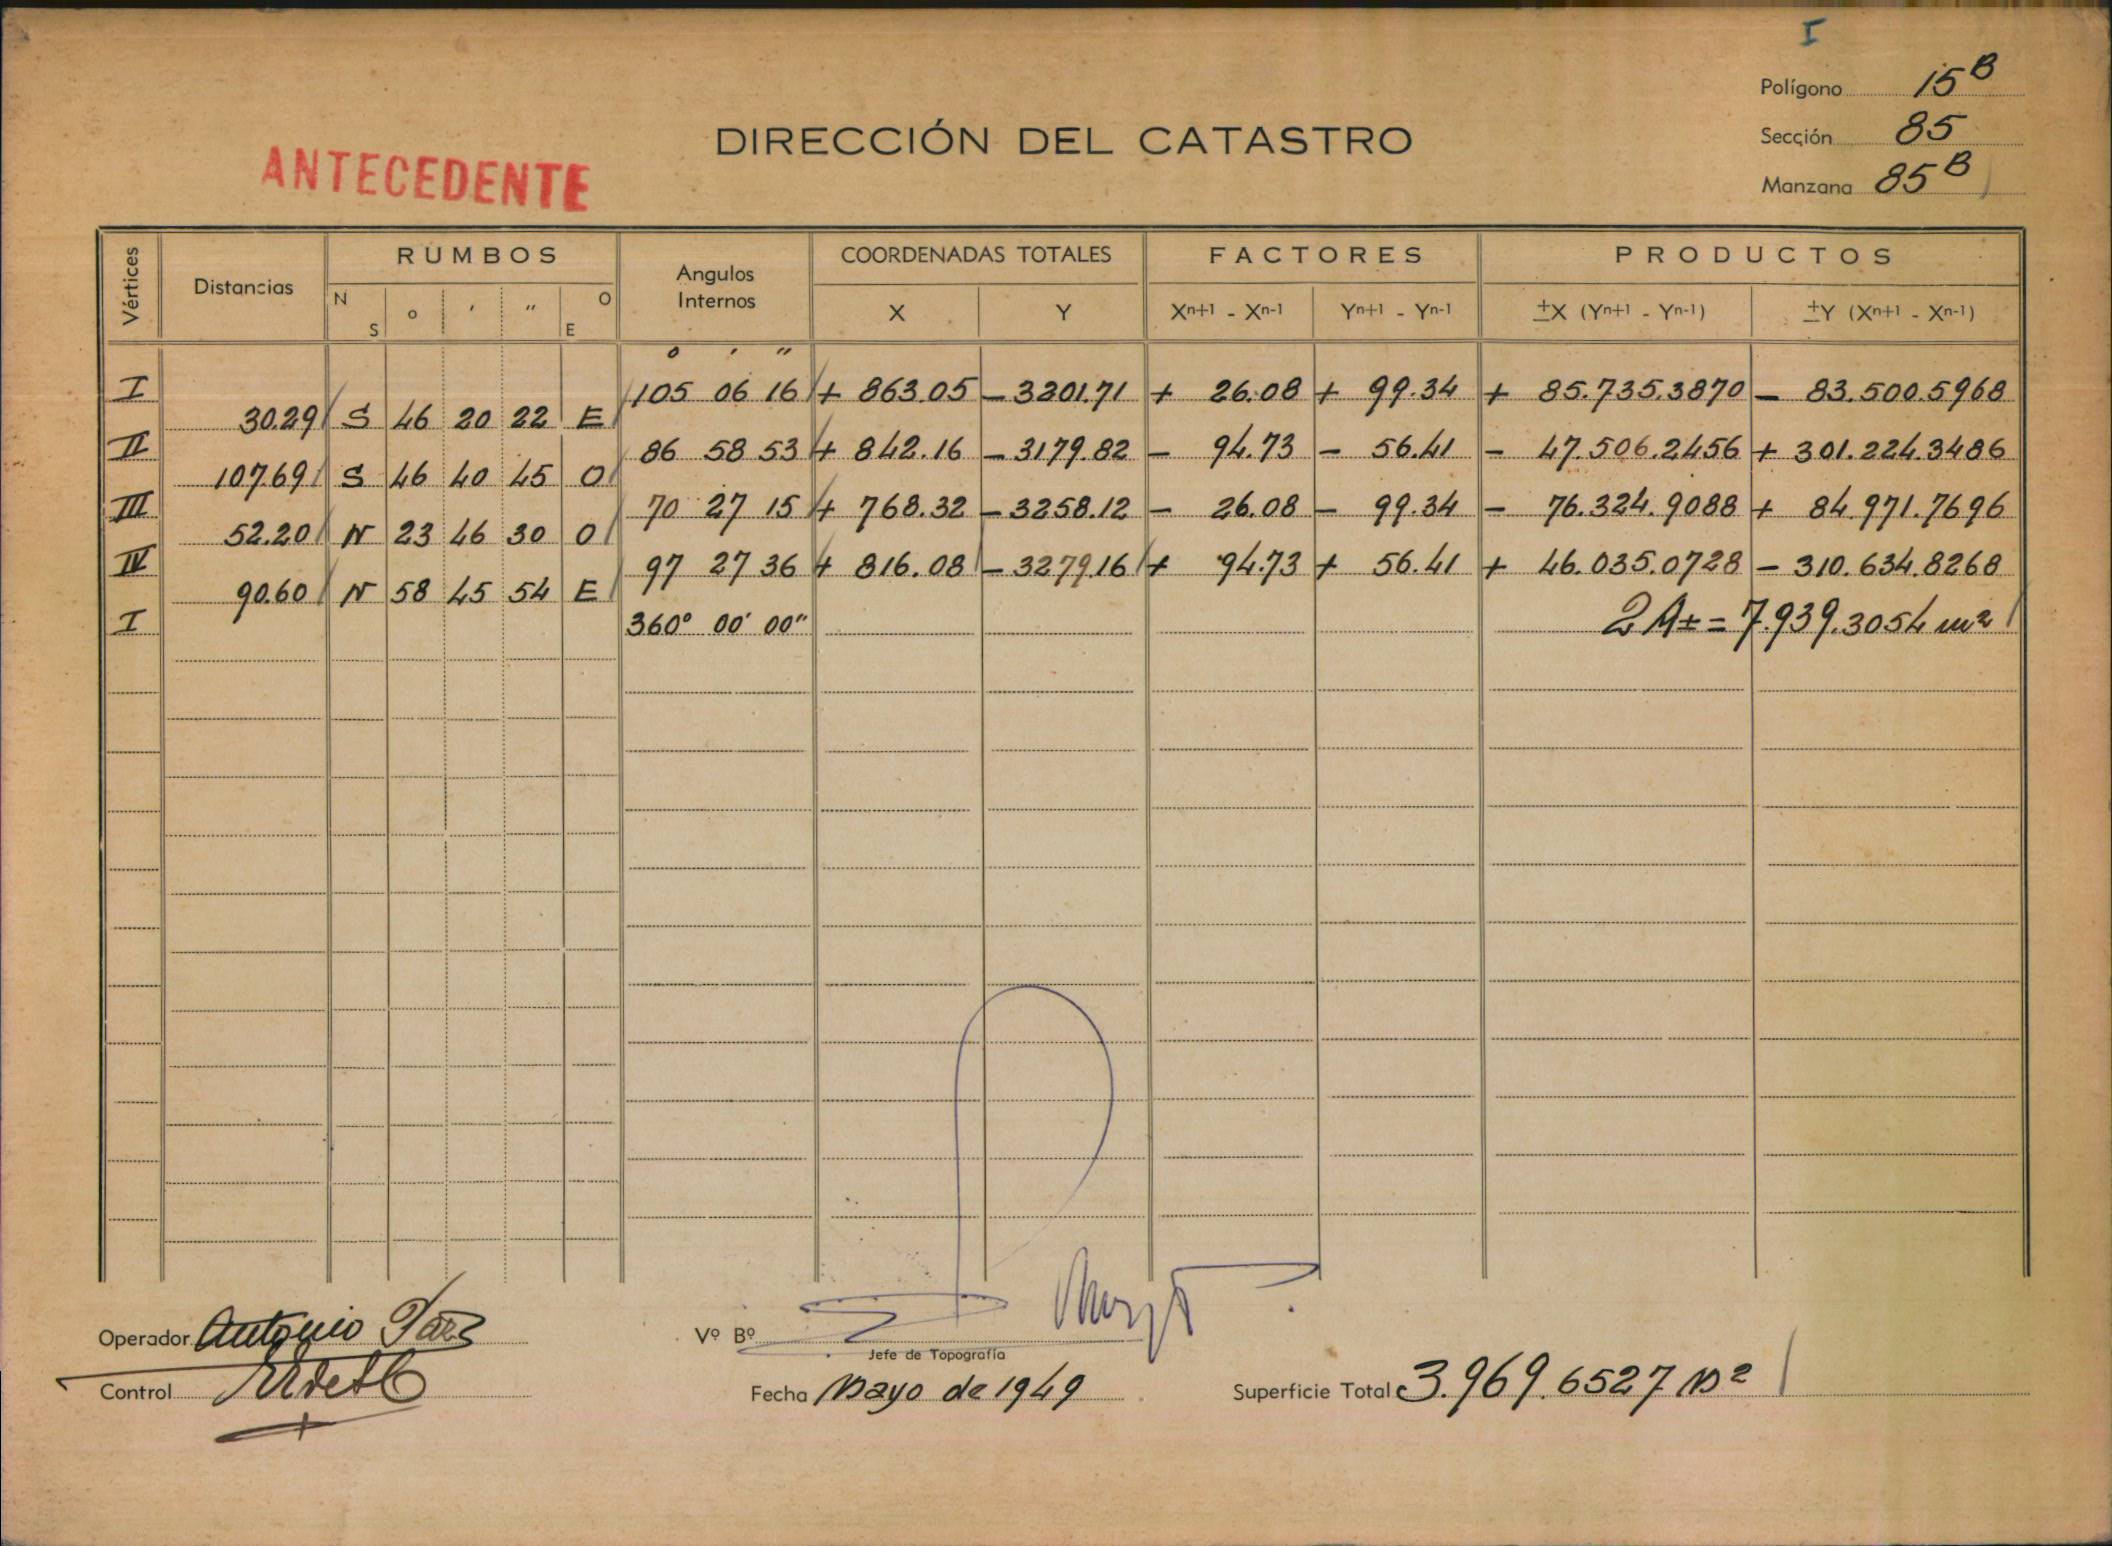 I
Polígono 15B
Sección 85
Manzana 85B
ANTECEDENTE
DIRECCIÓN DEL CATASTRO
Vértices Distancias RUMBOS Angulos Internos COORDENADAS TOTALES FACTORES PRODUCTOS
N S o ' " O E X Y Xn+1 - Xn-1 Yn+1 - Yn-1 ±X (Yn+1 - Yn-1) ±Y (Xn+1 - Xn-1)
o ' "
I 105 06 16 + 863.05 - 3201.71 + 26.08 + 99.34 + 85.735.3870 - 83.500.5968
30.29 S 46 20 22 E
II 86 58 53 + 842.16 - 3179.82 - 94.73 - 56.41 - 47.506.2456 + 301.224.3486
107.69 S 46 40 45 O
III 70 27 15 + 768.32 - 3258.12 - 26.08 - 99.34 - 76.324.9088 + 84.971.7696
52.20 N 23 46 30 O
IV 97 27 36 + 816.08 - 3279.16 + 94.73 + 56.41 + 46.035.0728 - 310.634.8268
90.60 N 58 45 54 E
I 360° 00' 00" 2A± = 7.939.3054 m2
Operador Antonio
Vº Bº
Jefe de Topografía
Control
Fecha Mayo de 1949
Superficie Total 3.969.6527 m2